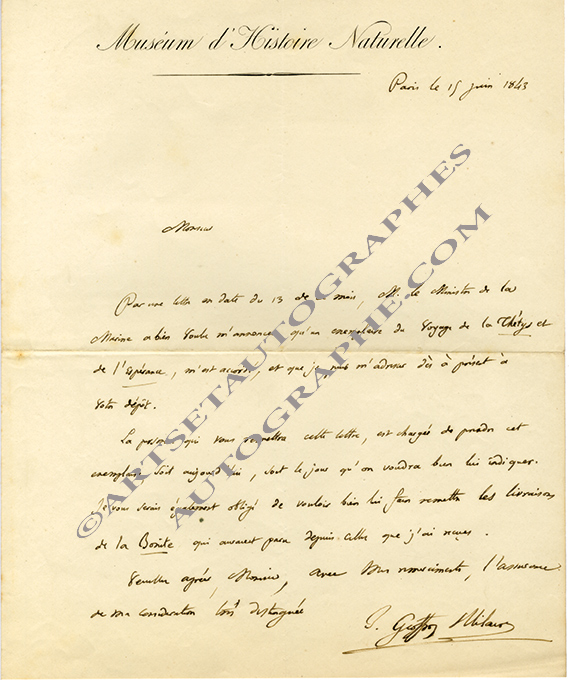 Muséum d'Histoire Naturelle.
Paris le 15 juin 1843
Monsieur
Par une lettre en date du 13 de ce mois, M. le Ministre de la
Marine a bien voulu m'annoncer qu'un exemplaire du Voyage de la Thétys et
de l'Espérance, m'est accordé, et que je puis m'adresser dès à présent à
votre dépôt.
La personne qui vous remettra cette lettre, est chargée de prendre cet
exemplaire soit aujourd'hui, soit le jour qu'on voudra bien lui indiquer.
Je vous serais également obligé de vouloir bien lui faire remettre les livraisons
de la Bonite qui auraient paru depuis celles que j'ai reçues.
Veuillez agréer, Monsieur, avec mes remerciements, l'assurance
de ma considération très distinguée
I. Geoffroy St Hilaire
©ARTSETAUTOGRAPHES
AUTOGRAPHE.COM